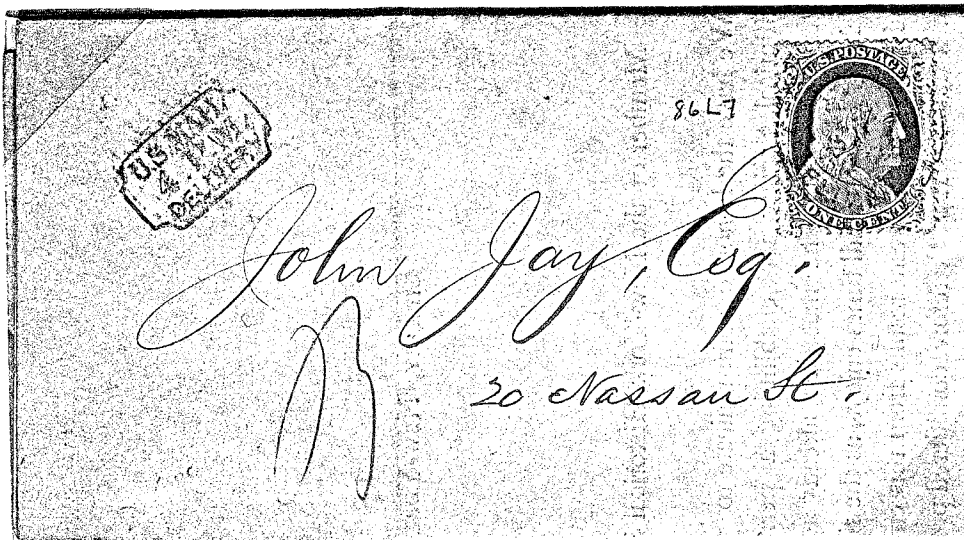 U.S. MAIL
4. P.M.
DELIVERY
86L7
U.S. POSTAGE
ONE CENT
John Jay, Esq.
20 Nassau St.